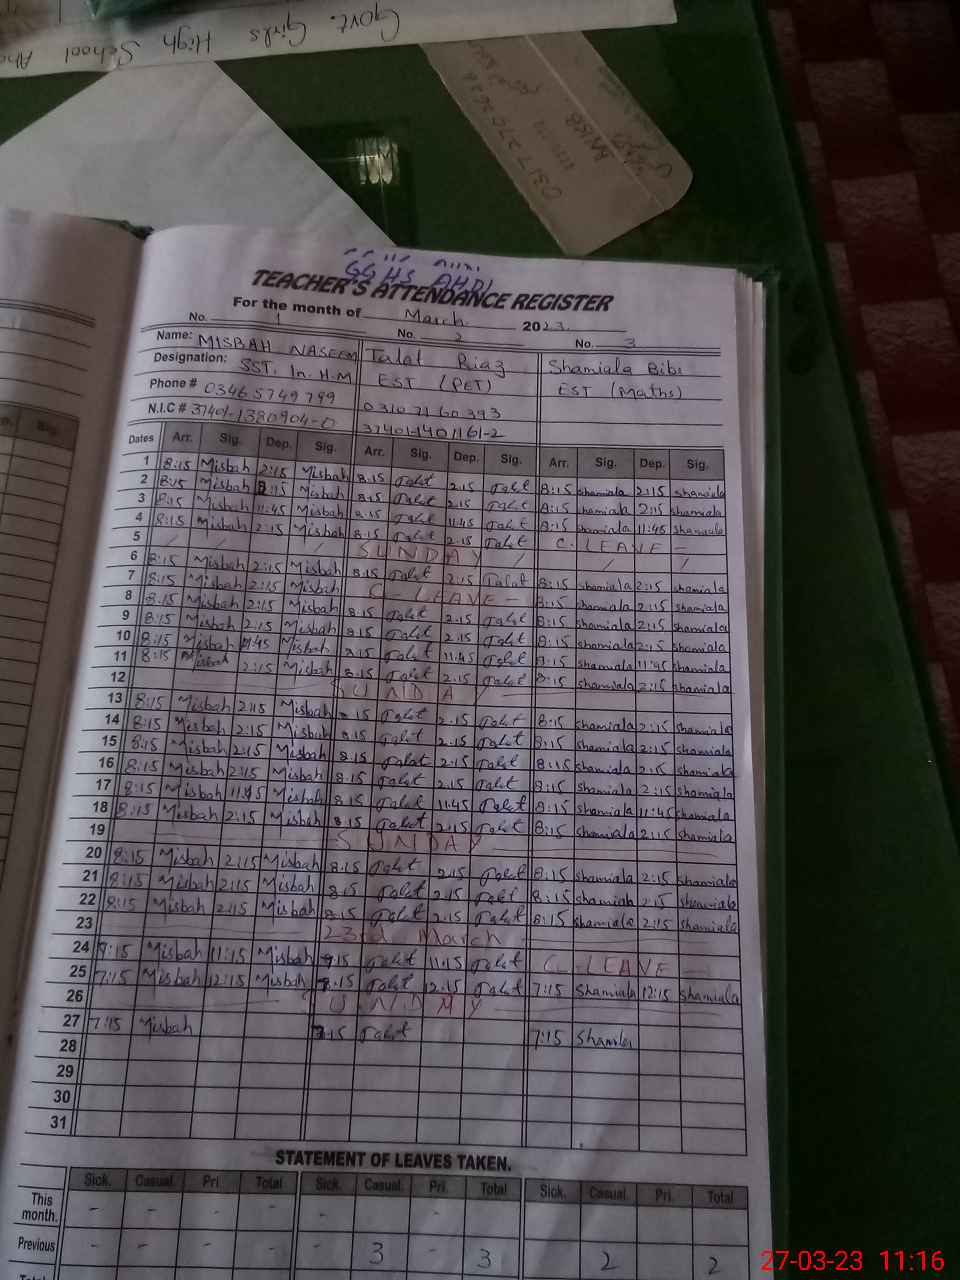 Govt. Girls High School
0317279
GGHS AHDI
TEACHER'S ATTENDANCE REGISTER
For the month of March 2023
No. 1 No. 2 No. 3
Name: MISBAH NASEEM Talat Riaz Shamiala Bibi
Designation: SST. In. H.M EST (PET) EST (Maths)
Phone # 0346 5749799 0310 7160393
N.I.C # 37401-1380904-0 37401-1401161-2
Dates Arr. Sig. Dep. Sig. Arr. Sig. Dep. Sig. Arr. Sig. Dep. Sig.
1 8:15 Misbah 2:15 Misbah 8.15 Talat 2.15 Talat 8:15 shamiala 2:15 shamiala
2 8:15 Misbah 2:15 Misbah 8.15 Talat 2.15 Talat 8:15 shamiala 2:15 shamiala
3 8:15 Misbah 11:45 Misbah 8.15 Talat 11.45 Talat 8:15 shamiala 11:45 shamiala
4 8:15 Misbah 2:15 Misbah 8.15 Talat 2.15 Talat C. LEAVE -
5 SUNDAY
6 8:15 Misbah 2:15 Misbah 8.15 Talat 2.15 Talat 8:15 shamiala 2:15 shamiala
7 8:15 Misbah 2:15 Misbah C - LEAVE - 8:15 shamiala 2:15 shamiala
8 8:15 Misbah 2:15 Misbah 8.15 Talat 2.15 Talat 8:15 shamiala 2:15 shamiala
9 8:15 Misbah 2:15 Misbah 8.15 Talat 2.15 Talat 8:15 shamiala 2:15 shamiala
10 8:15 Misbah 11:45 Misbah 8.15 Talat 11.45 Talat 8:15 shamiala 11:45 shamiala
11 8:15 Misbah 2:15 Misbah 8.15 Talat 2.15 Talat 8:15 shamiala 2:15 shamiala
12 SUNDAY
13 8:15 Misbah 2:15 Misbah 8.15 Talat 2.15 Talat 8:15 shamiala 2:15 shamiala
14 8:15 Misbah 2:15 Misbah 8.15 Talat 2.15 Talat 8:15 shamiala 2:15 shamiala
15 8:15 Misbah 2:15 Misbah 8.15 Talat 2.15 Talat 8:15 shamiala 2:15 shamiala
16 8:15 Misbah 2:15 Misbah 8.15 Talat 2.15 Talat 8:15 shamiala 2:15 shamiala
17 8:15 Misbah 11:45 Misbah 8.15 Talat 11.45 Talat 8:15 shamiala 11:45 shamiala
18 8:15 Misbah 2:15 Misbah 8.15 Talat 2.15 Talat 8:15 shamiala 2:15 shamiala
19 SUNDAY
20 8:15 Misbah 2:15 Misbah 8.15 Talat 2.15 Talat 8:15 shamiala 2:15 shamiala
21 8:15 Misbah 2:15 Misbah 8.15 Talat 2.15 Talat 8:15 shamiala 2:15 shamiala
22 8:15 Misbah 2:15 Misbah 8.15 Talat 2.15 Talat 8:15 shamiala 2:15 shamiala
23 23rd March
24 Misbah 11:15 Misbah Talat 11.15 Talat C - LEAVE -
25 7:15 Misbah 12:15 Misbah 7.15 Talat 12.15 Talat 7:15 Shamiala 12:15 shamiala
26 SUNDAY
27 7:15 Misbah 7.15 Talat 7:15
28
29
30
31
STATEMENT OF LEAVES TAKEN.
Sick. Casual. Pri. Total Sick. Casual. Pri. Total Sick. Casual. Pri. Total
This month. - - - -
Previous - - - - - 3 - 3 2 2
27-03-23 11:16